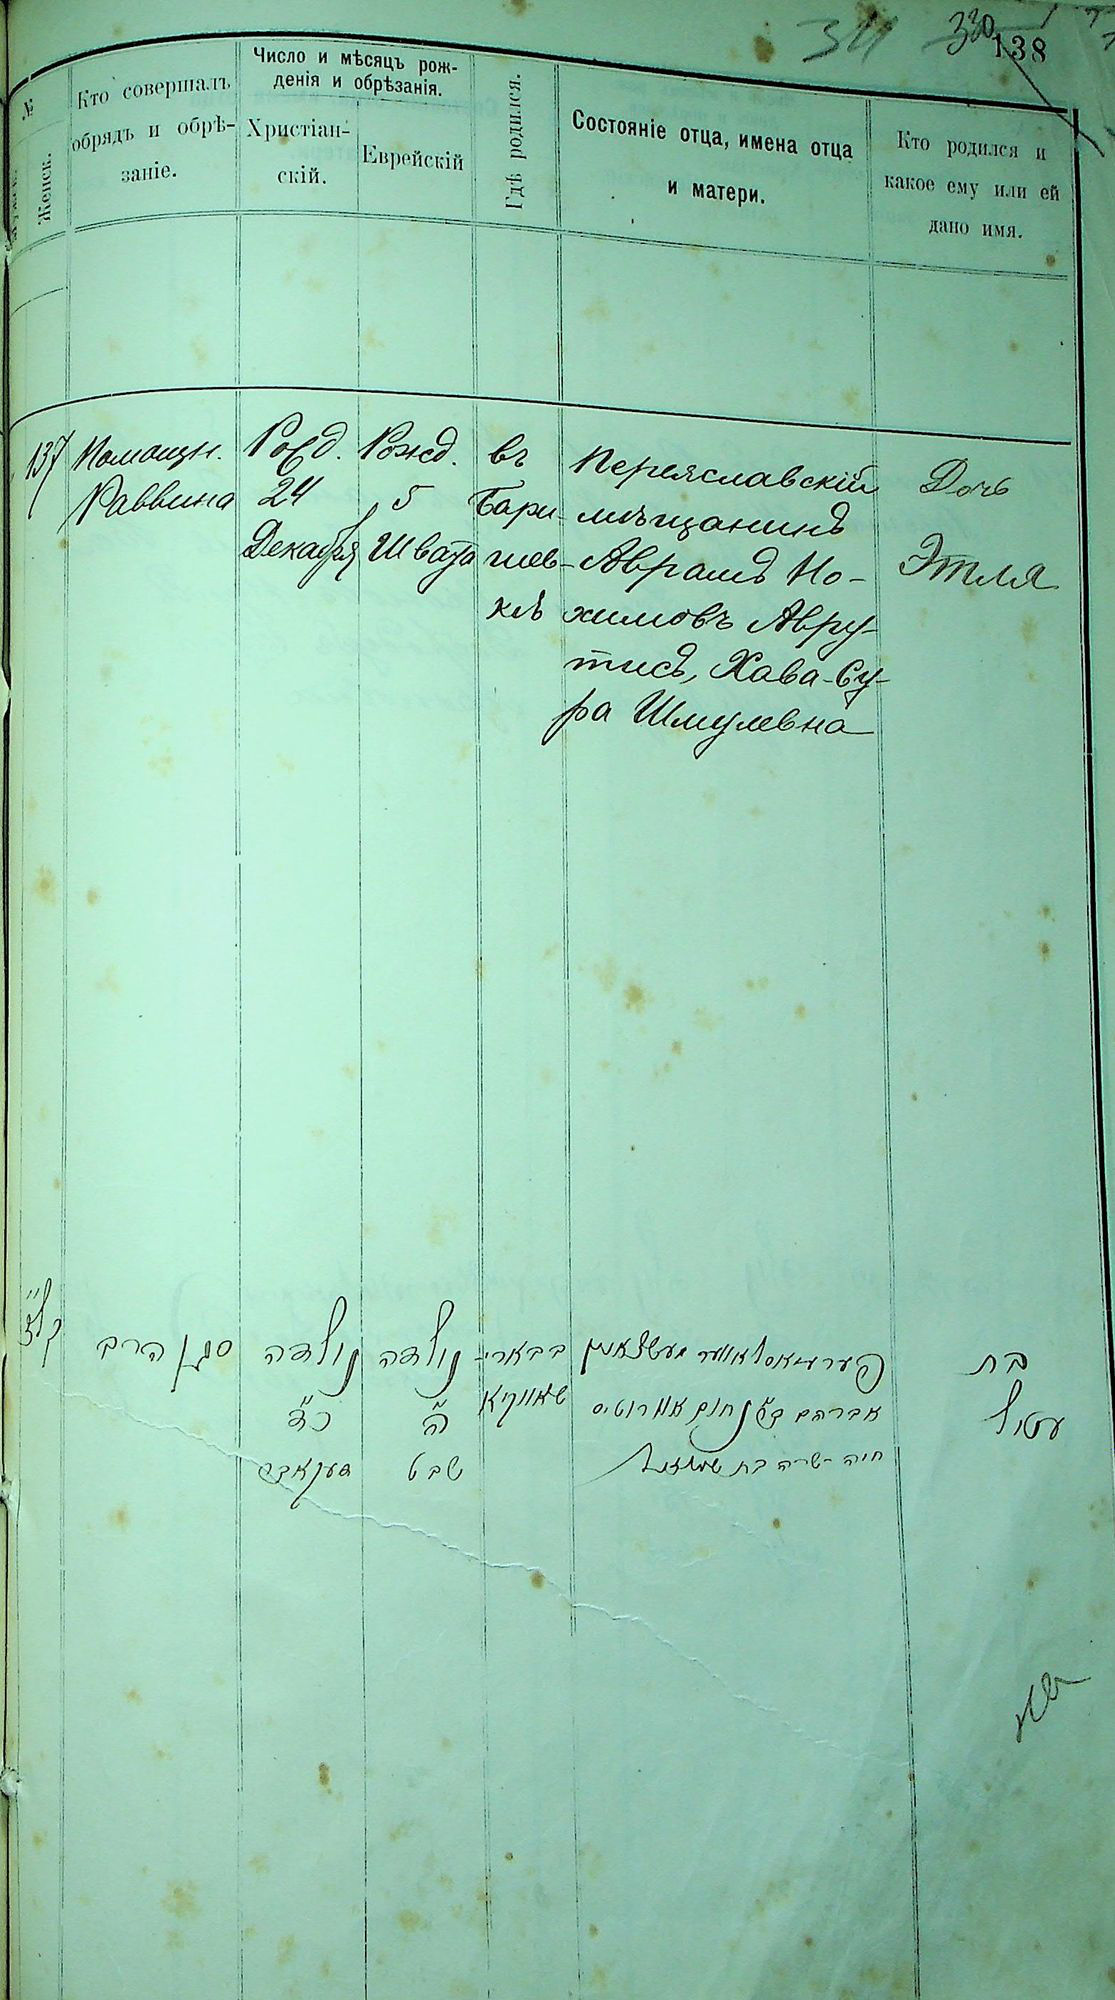 330
138
№
Женск.
Кто совершалъ
обрядъ и обрѣ-
заніе.
Число и мѣсяцъ рож-
денія и обрѣзанія.
Христіан-
скій.
Еврейскій
Гдѣ родился.
Состояніе отца, имена отца
и матери.
Кто родился и
какое ему или ей
дано имя.
137
Помощн.
Раввина
Рожд.
24
Декабря
Рожд.
5
Швата
въ
Бари-
шев-
кѣ
Переяславскій
мѣщанинъ
Аврамъ Но-
химовъ Авру-
тисъ, Хава-Су-
ра Шмулевна
Дочь
Этля
קל״ז
סגן הרב
נולדה
כ״ד
דעקאבר
נולדה
ה״
שבט
בבארי-
שאווקא
אברהם ב״נ נחום אוורוטיס
חיה שרה בת
בת
עטיל